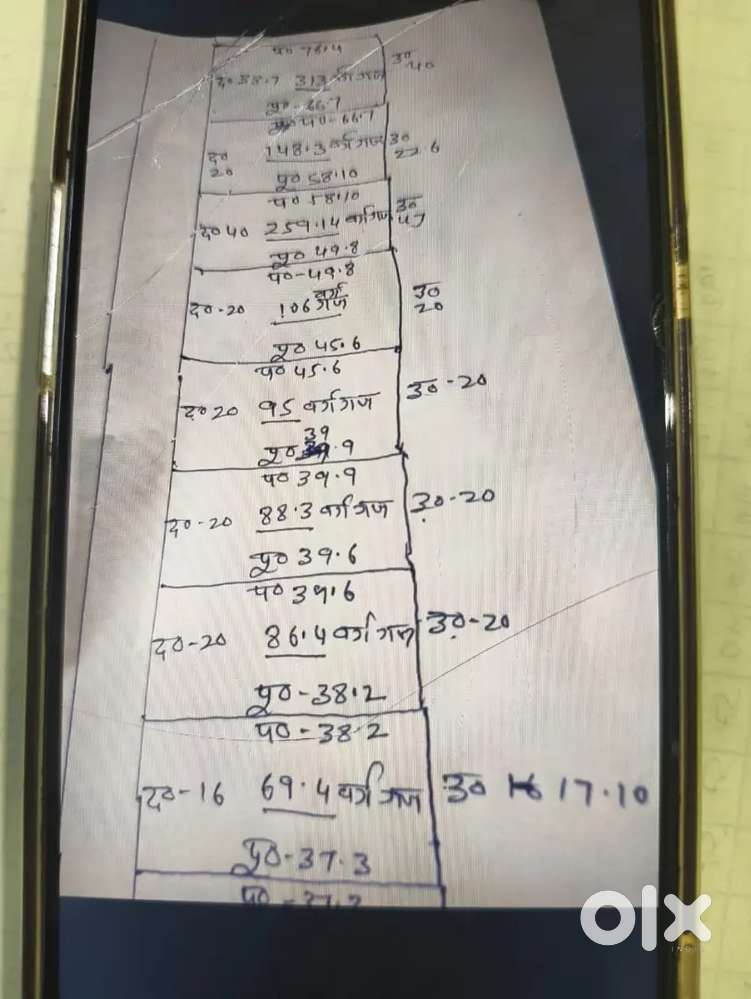 प० 78.4
द० 38.7 313 वर्ग गज उ० 40
पू०-66.7
प०-66.7
द० 20 148.3 वर्ग गज उ० 22.6
पू० 58.10
प० 58.10
द० 40 259.14 वर्ग गज उ०
पू० 49.8
प०-49.8
द०-20 106 वर्ग गज उ० 20
पू० 45.6
प० 45.6
द० 20 95 वर्ग गज उ०-20
39
पू० 39.9
प० 39.9
द०-20 88.3 वर्ग गज उ०-20
पू० 39.6
प० 39.6
द०-20 86.4 वर्ग गज उ०-20
पू०-38.2
प०-38.2
द०-16 69.4 वर्ग गज उ० 16 17.10
पू०-37.3
olx